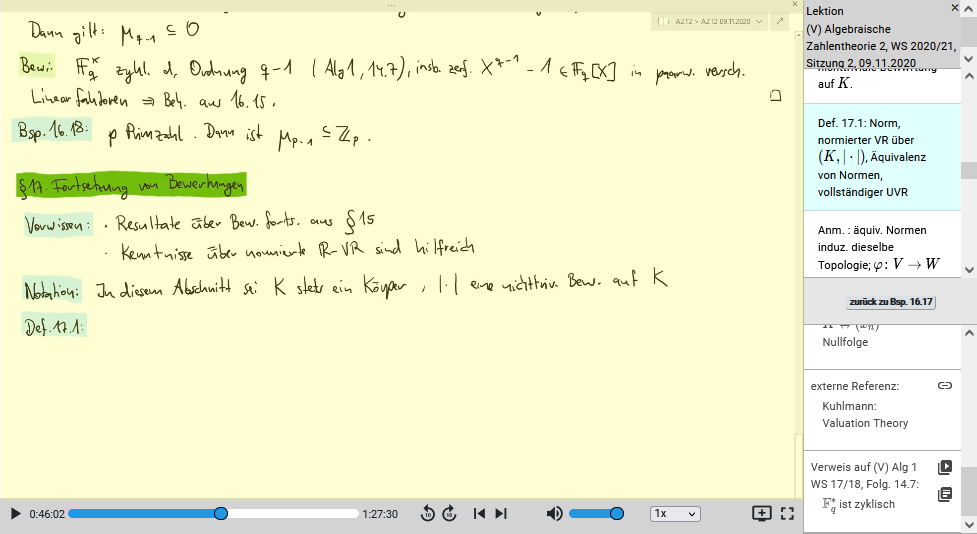 AZT2 > AZT2 09.11.2020
Dann gilt: μ_{q-1} ⊆ O
Bew.: 𝔽_q^× zykl. d. Ordnung q-1 (Alg 1, 14.7), insb. zerf. X^{q-1} - 1 ∈ 𝔽_q[X] in paarw. versch.
Linearfaktoren ⇒ Beh. aus 16.15.
Bsp. 16.18: p Primzahl. Dann ist μ_{p-1} ⊆ ℤ_p.
§17. Fortsetzung von Bewertungen
Vorwissen: · Resultate über Bew.forts. aus §15
· Kenntnisse über normierte ℝ-VR sind hilfreich
Notation: In diesem Abschnitt sei K stets ein Körper, |·| eine nichttriv. Bew. auf K
Def. 17.1:
0:46:02
1:27:30
10
10
1x
Lektion
(V) Algebraische
Zahlentheorie 2, WS 2020/21,
Sitzung 2, 09.11.2020
auf K.
Def. 17.1: Norm,
normierter VR über
(K, | · |), Äquivalenz
von Normen,
vollständiger UVR
Anm. : äquiv. Normen
induz. dieselbe
Topologie; φ: V → W
zurück zu Bsp. 16.17
Nullfolge
externe Referenz:
Kuhlmann:
Valuation Theory
Verweis auf (V) Alg 1
WS 17/18, Folg. 14.7:
𝔽_q^* ist zyklisch